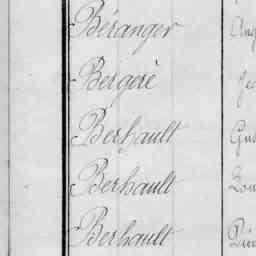 Béranger
Bergerè
Berhault
Berhault
Berhault